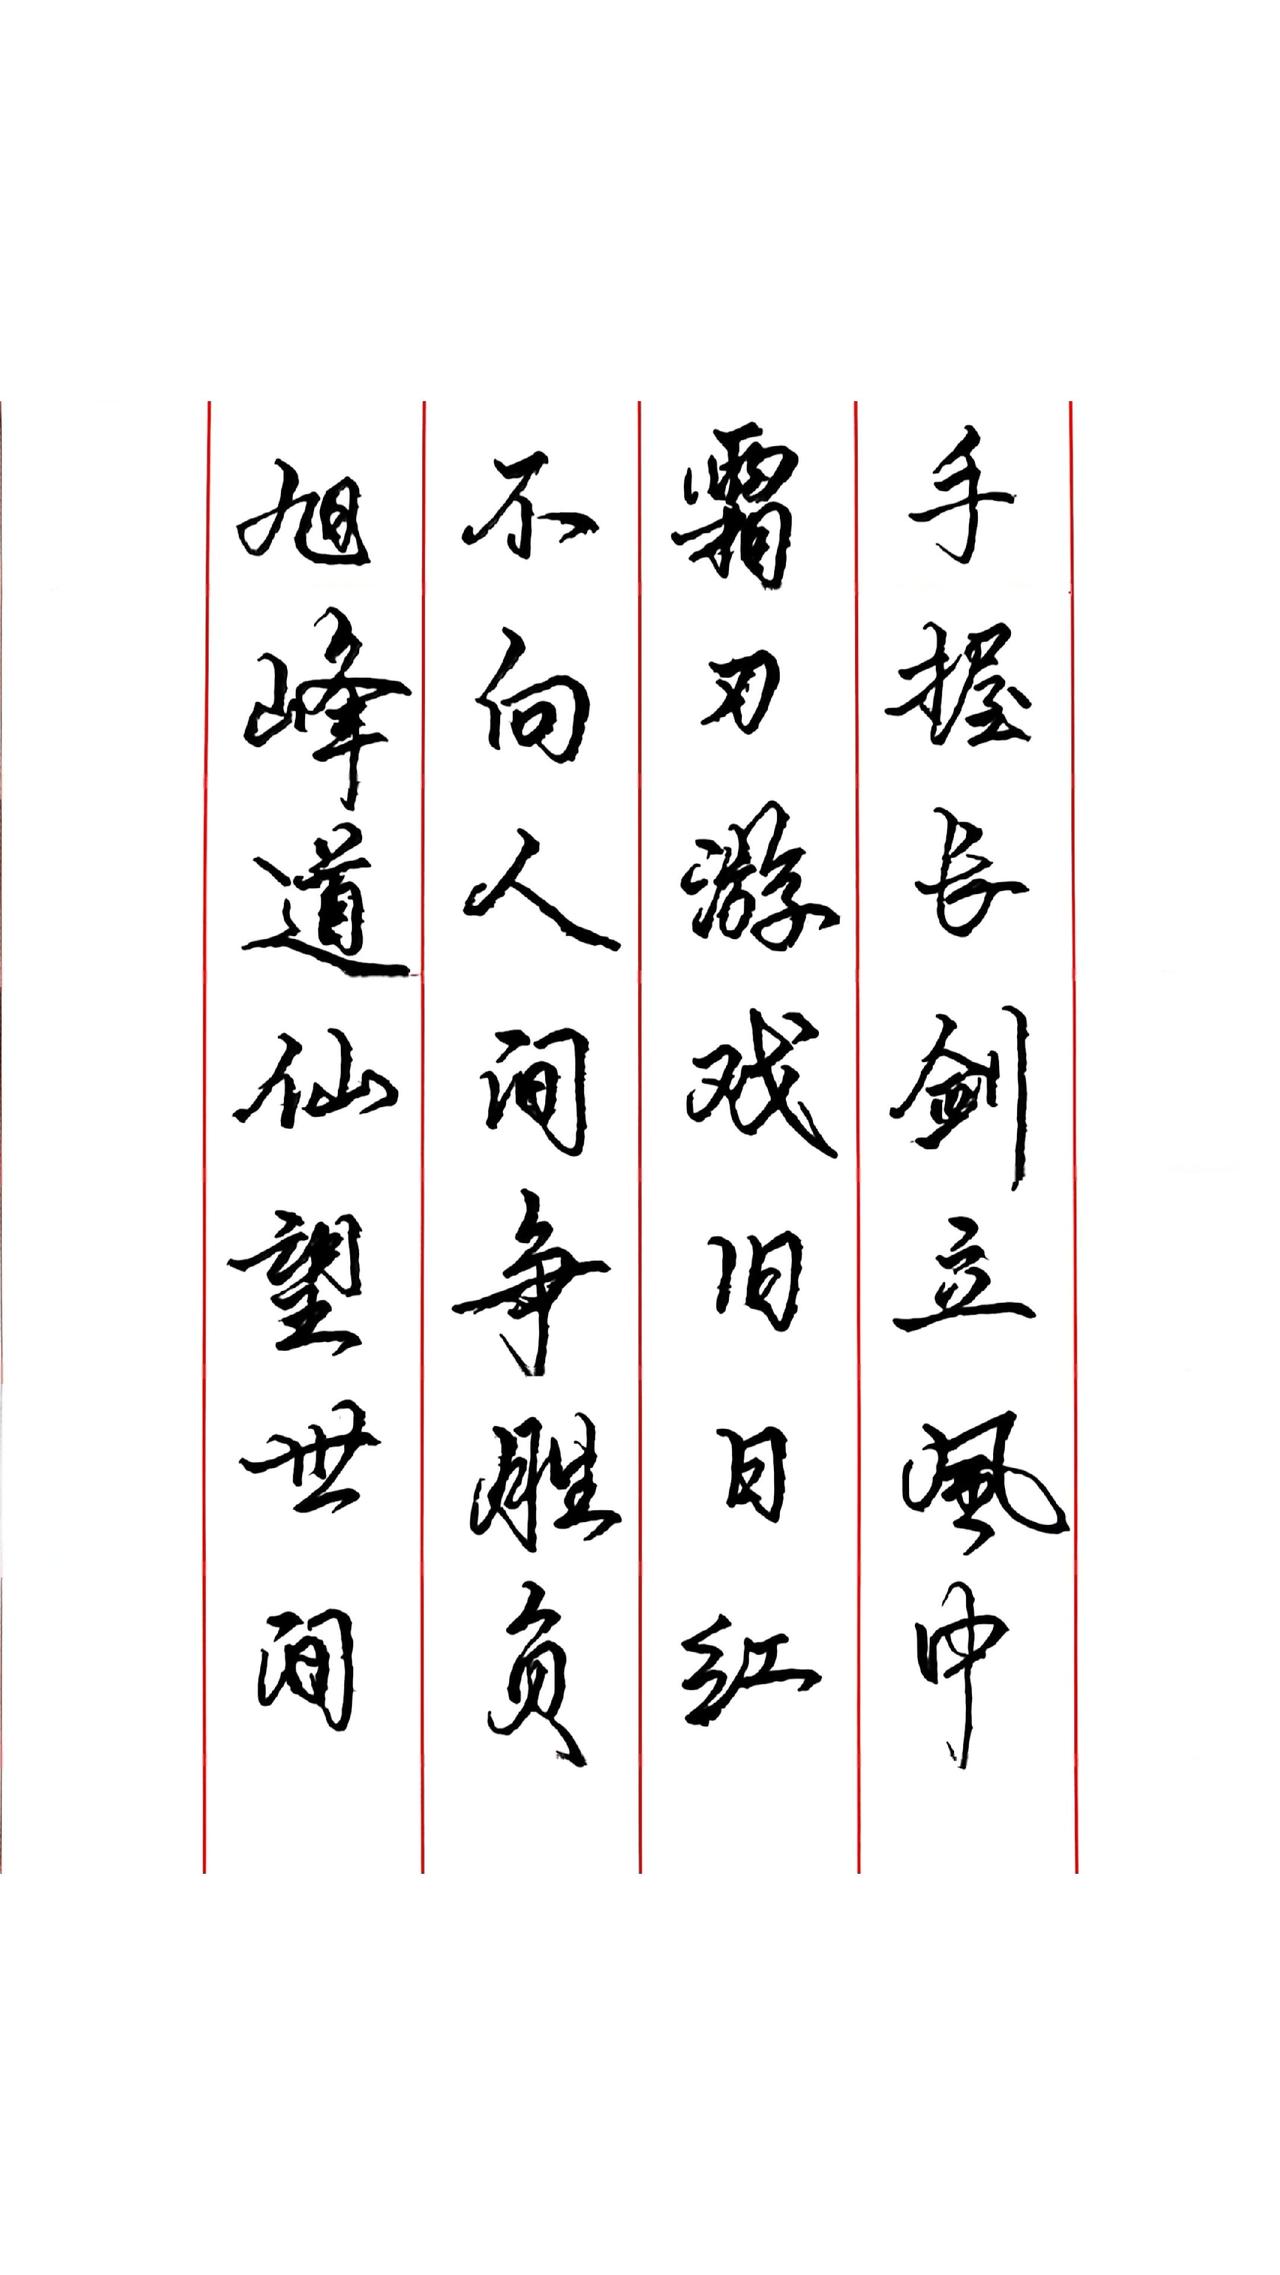 手握长剑立風中
霜刃游戏旧日红
不向人间争胜负
旭峰道仙望世间